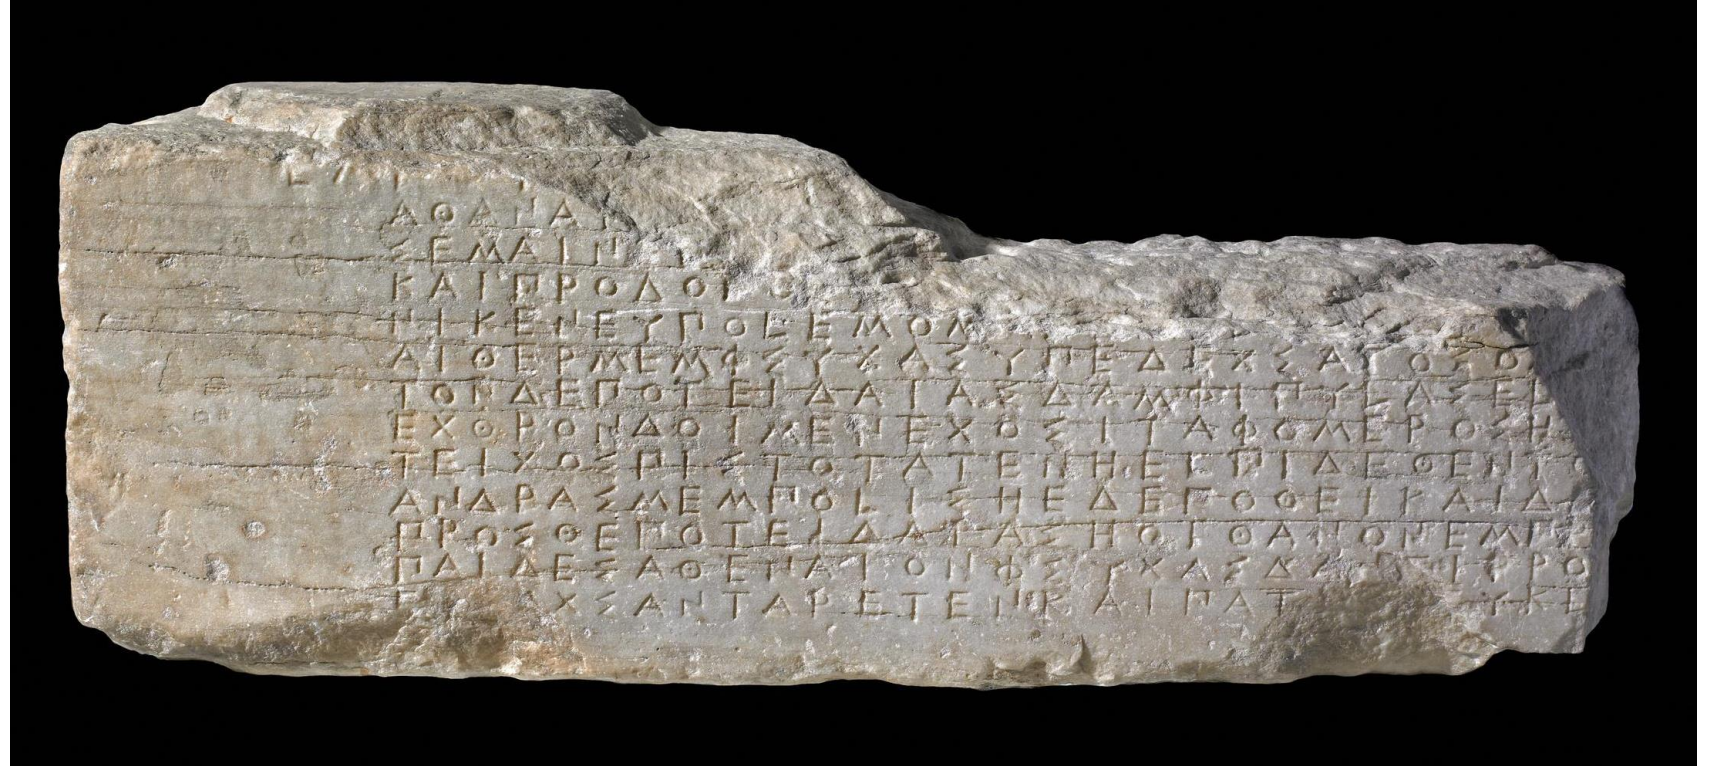 ΑΘΑΝΑ
ΣΕΜΑΙΝ
ΚΑΙΠΡΟΓΟ
ΝΙΚΕΝΕΥΠΟΛΕΜΟΜ
ΑΙΘΕΡΜΕΜΦΣΥΧΑΣΥΠΕΔΕΧΣΑΤΟΣΟ
ΤΟΝΔΕΠΟΤΕΙΔΑΙΑΣΔΑΜΦΙΠΥΛΑΣΕΛ
ΕΧΘΡΟΝΔΟΙΜΕΝΕΧΟΣΙΤΑΦΟΜΕΡΟΣΗ
ΤΕΙΧΟΣΠΙΣΤΟΤΑΤΕΝΗΕΛΠΙΔΕΘΕΝΤΟ
ΑΝΔΡΑΣΜΕΜΠΟΛΙΣΗΕΔΕΠΟΘΕΙΚΑΙΔ
ΠΡΟΣΘΕΠΟΤΕΙΔΑΙΑΣΗΟΙΘΑΝΟΝΕΜΠΡ
ΠΑΙΔΕΣΑΘΕΝΑΙΟΝΦΣΥΧΑΣΔΑΝΤΙΡΡΟ
ΧΣΑΝΤΑΡΕΤΕΝΚΑΙΠΑΤ ΕΥΚΛ